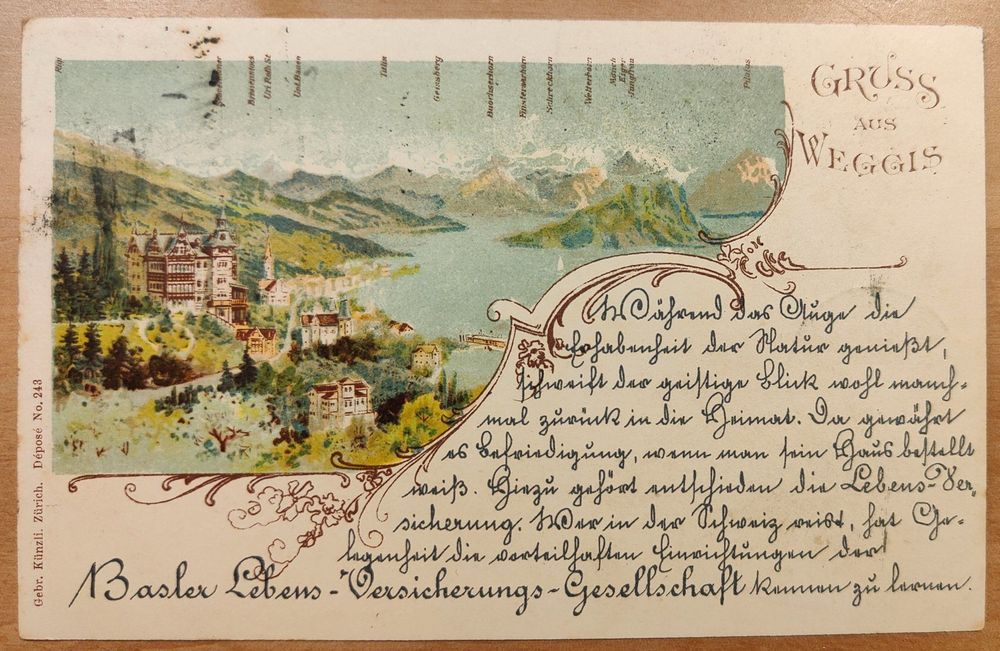 Rigi
Brunnenstock
Uri Rothst.
Titlis
Buochserhorn
Finsteraarhorn
Schreckhorn
Wetterhorn
Mönch
Eiger
Jungfrau
Pilatus
GRUSS
AUS
WEGGIS
Während das Auge die
Erhabenheit der Natur genießt,
schweift der geistige Blick wohl manch-
mal zurück in die Heimat. Da gewährt
es Befriedigung, wenn man sein Haus bestellt
weiß. Hiezu gehört entschieden die Lebens-Ver-
sicherung. Wer in der Schweiz reist, hat Ge-
legenheit die vorteilhaften Einrichtungen der
Basler Lebens-Versicherungs-Gesellschaft kennen zu lernen.
Gebr. Künzli. Zürich. Déposé No. 243